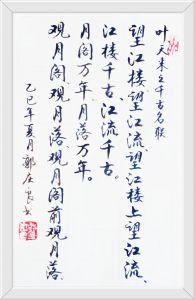 叶天来之千古名联
望江楼望江流望江楼上望江流、
江楼千古、江流千古。
观月阁观月落观月阁前观月落
月阁万年、月落万年。
乙巳年夏月郭庄